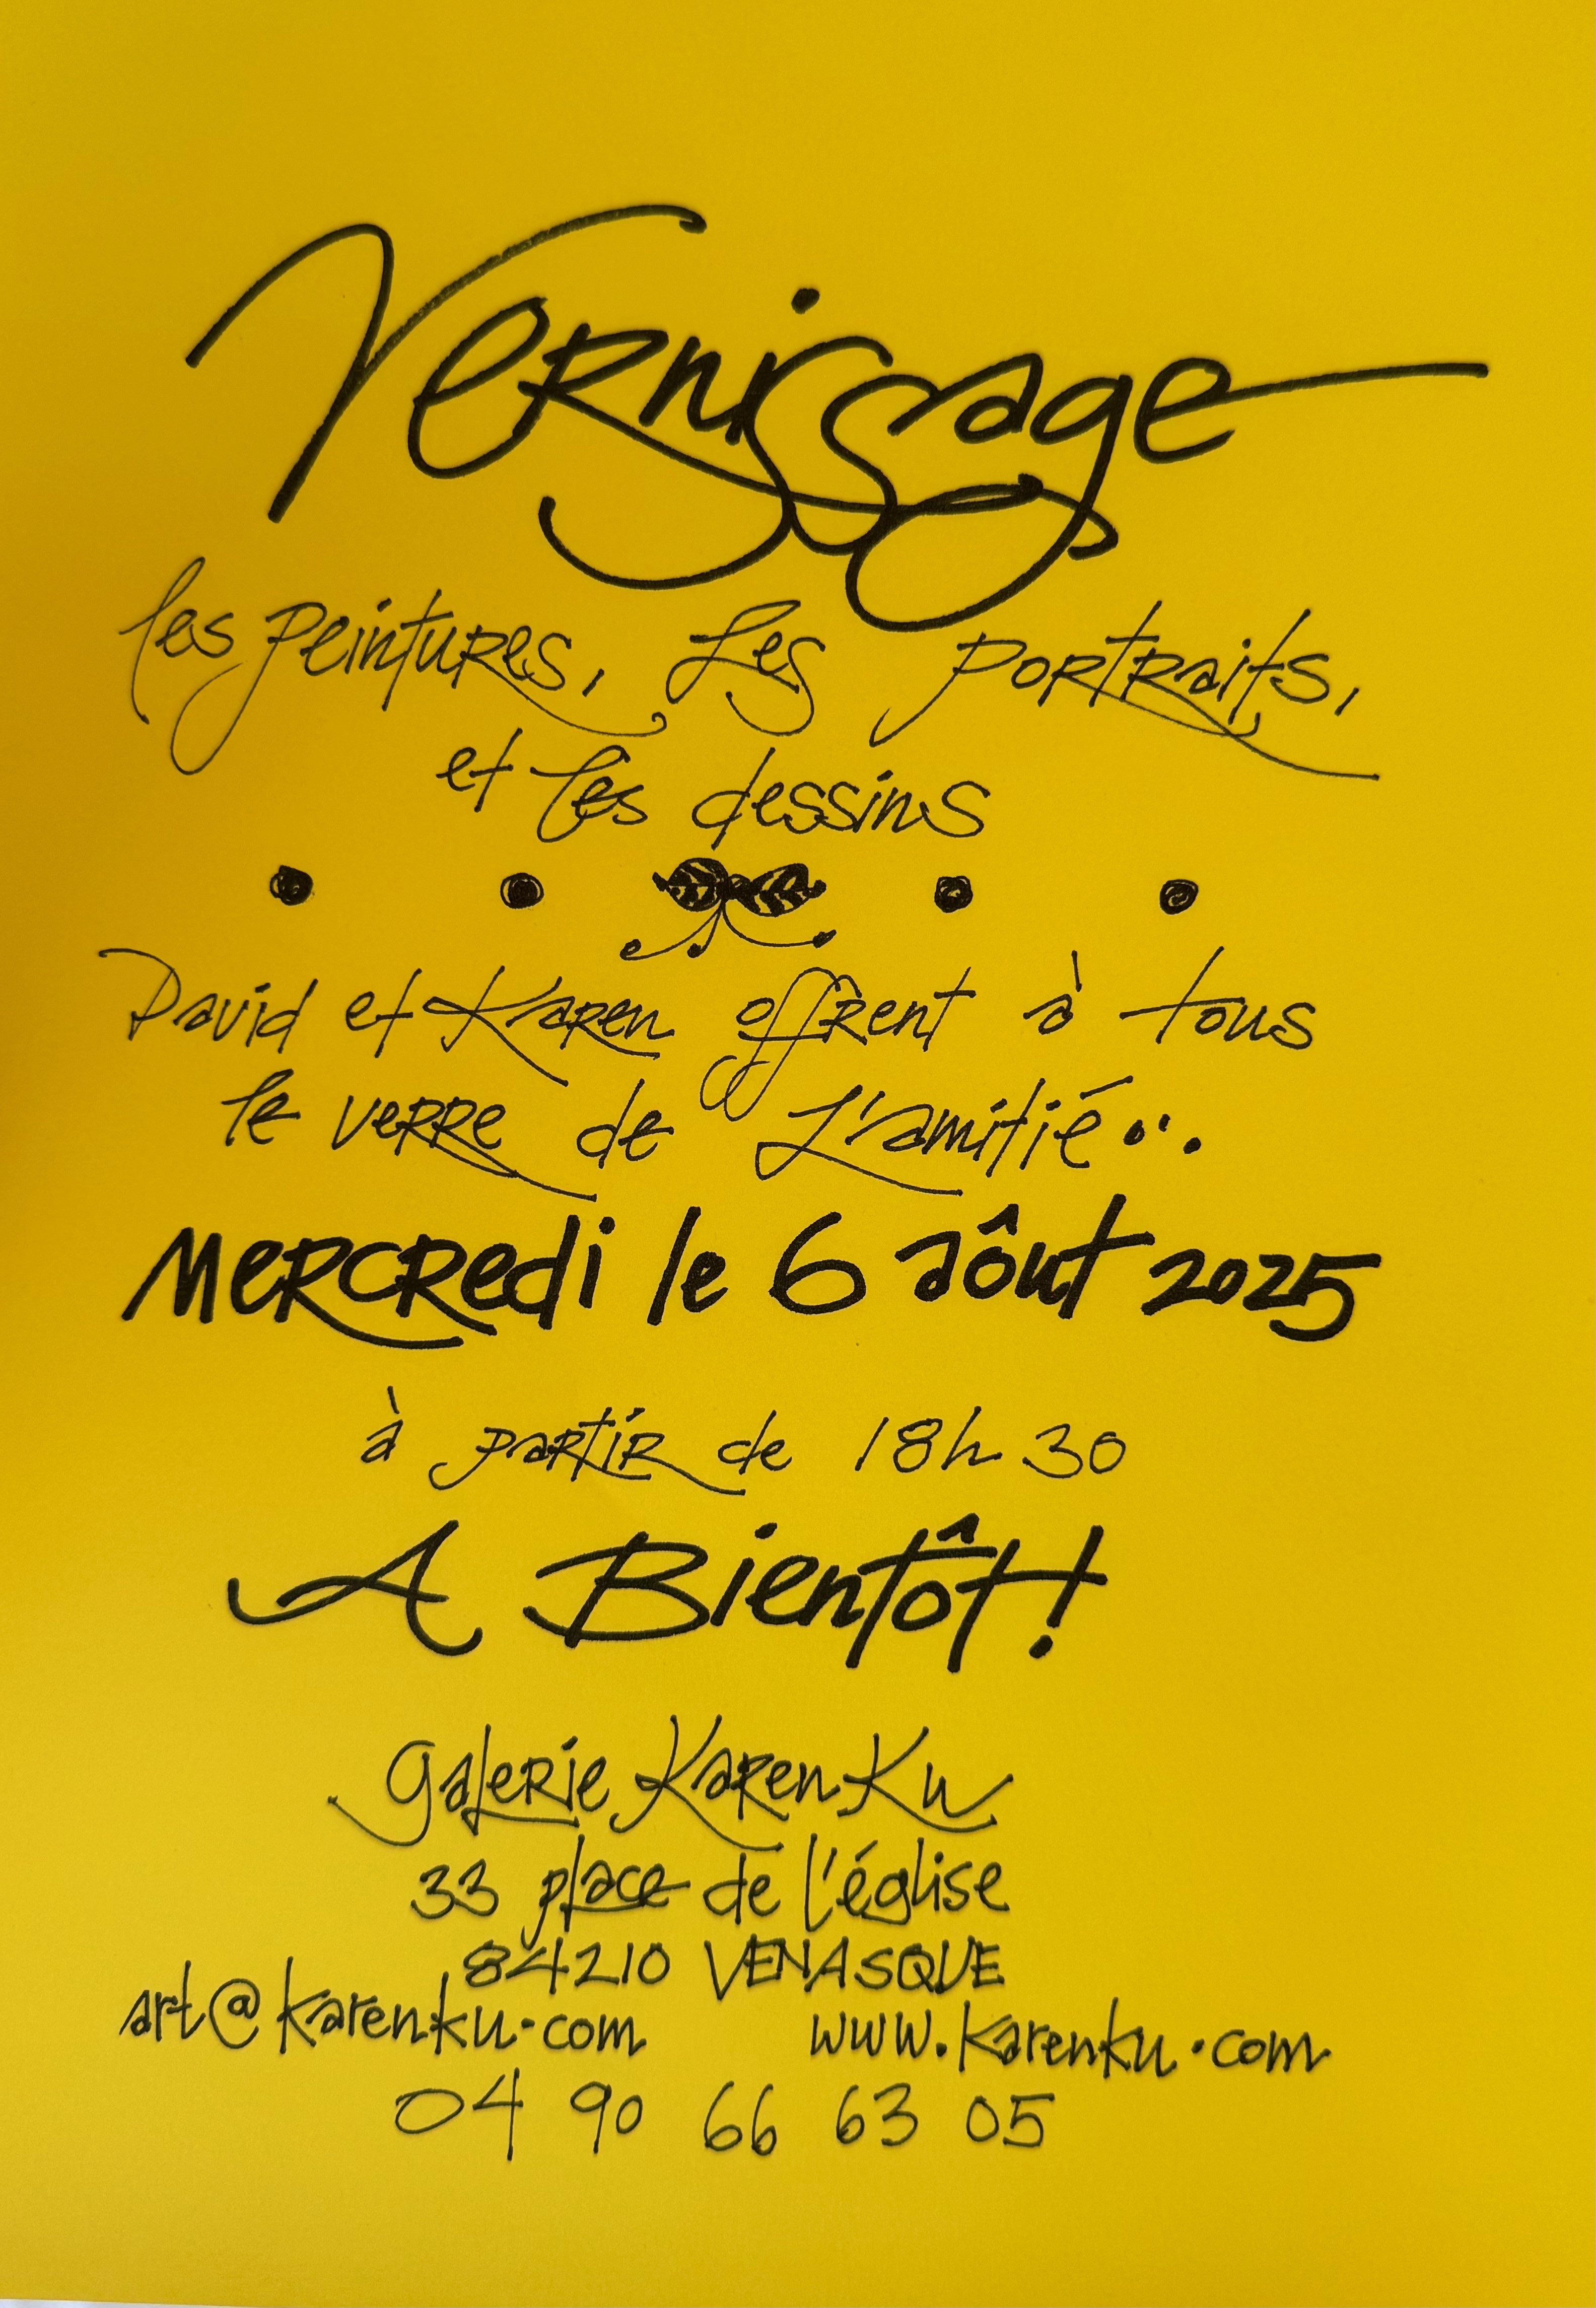 Vernissage
les peintures, Les portraits,
et les dessins
David et Karen offrent à tous
le verre de L'amitié...
Mercredi le 6 aôut 2025
à partir de 18h30
A Bientôt!
Galerie Karen Ku
33 place de l'église
84210 VENASQUE
art@karenku.com www.karenku.com
04 90 66 63 05